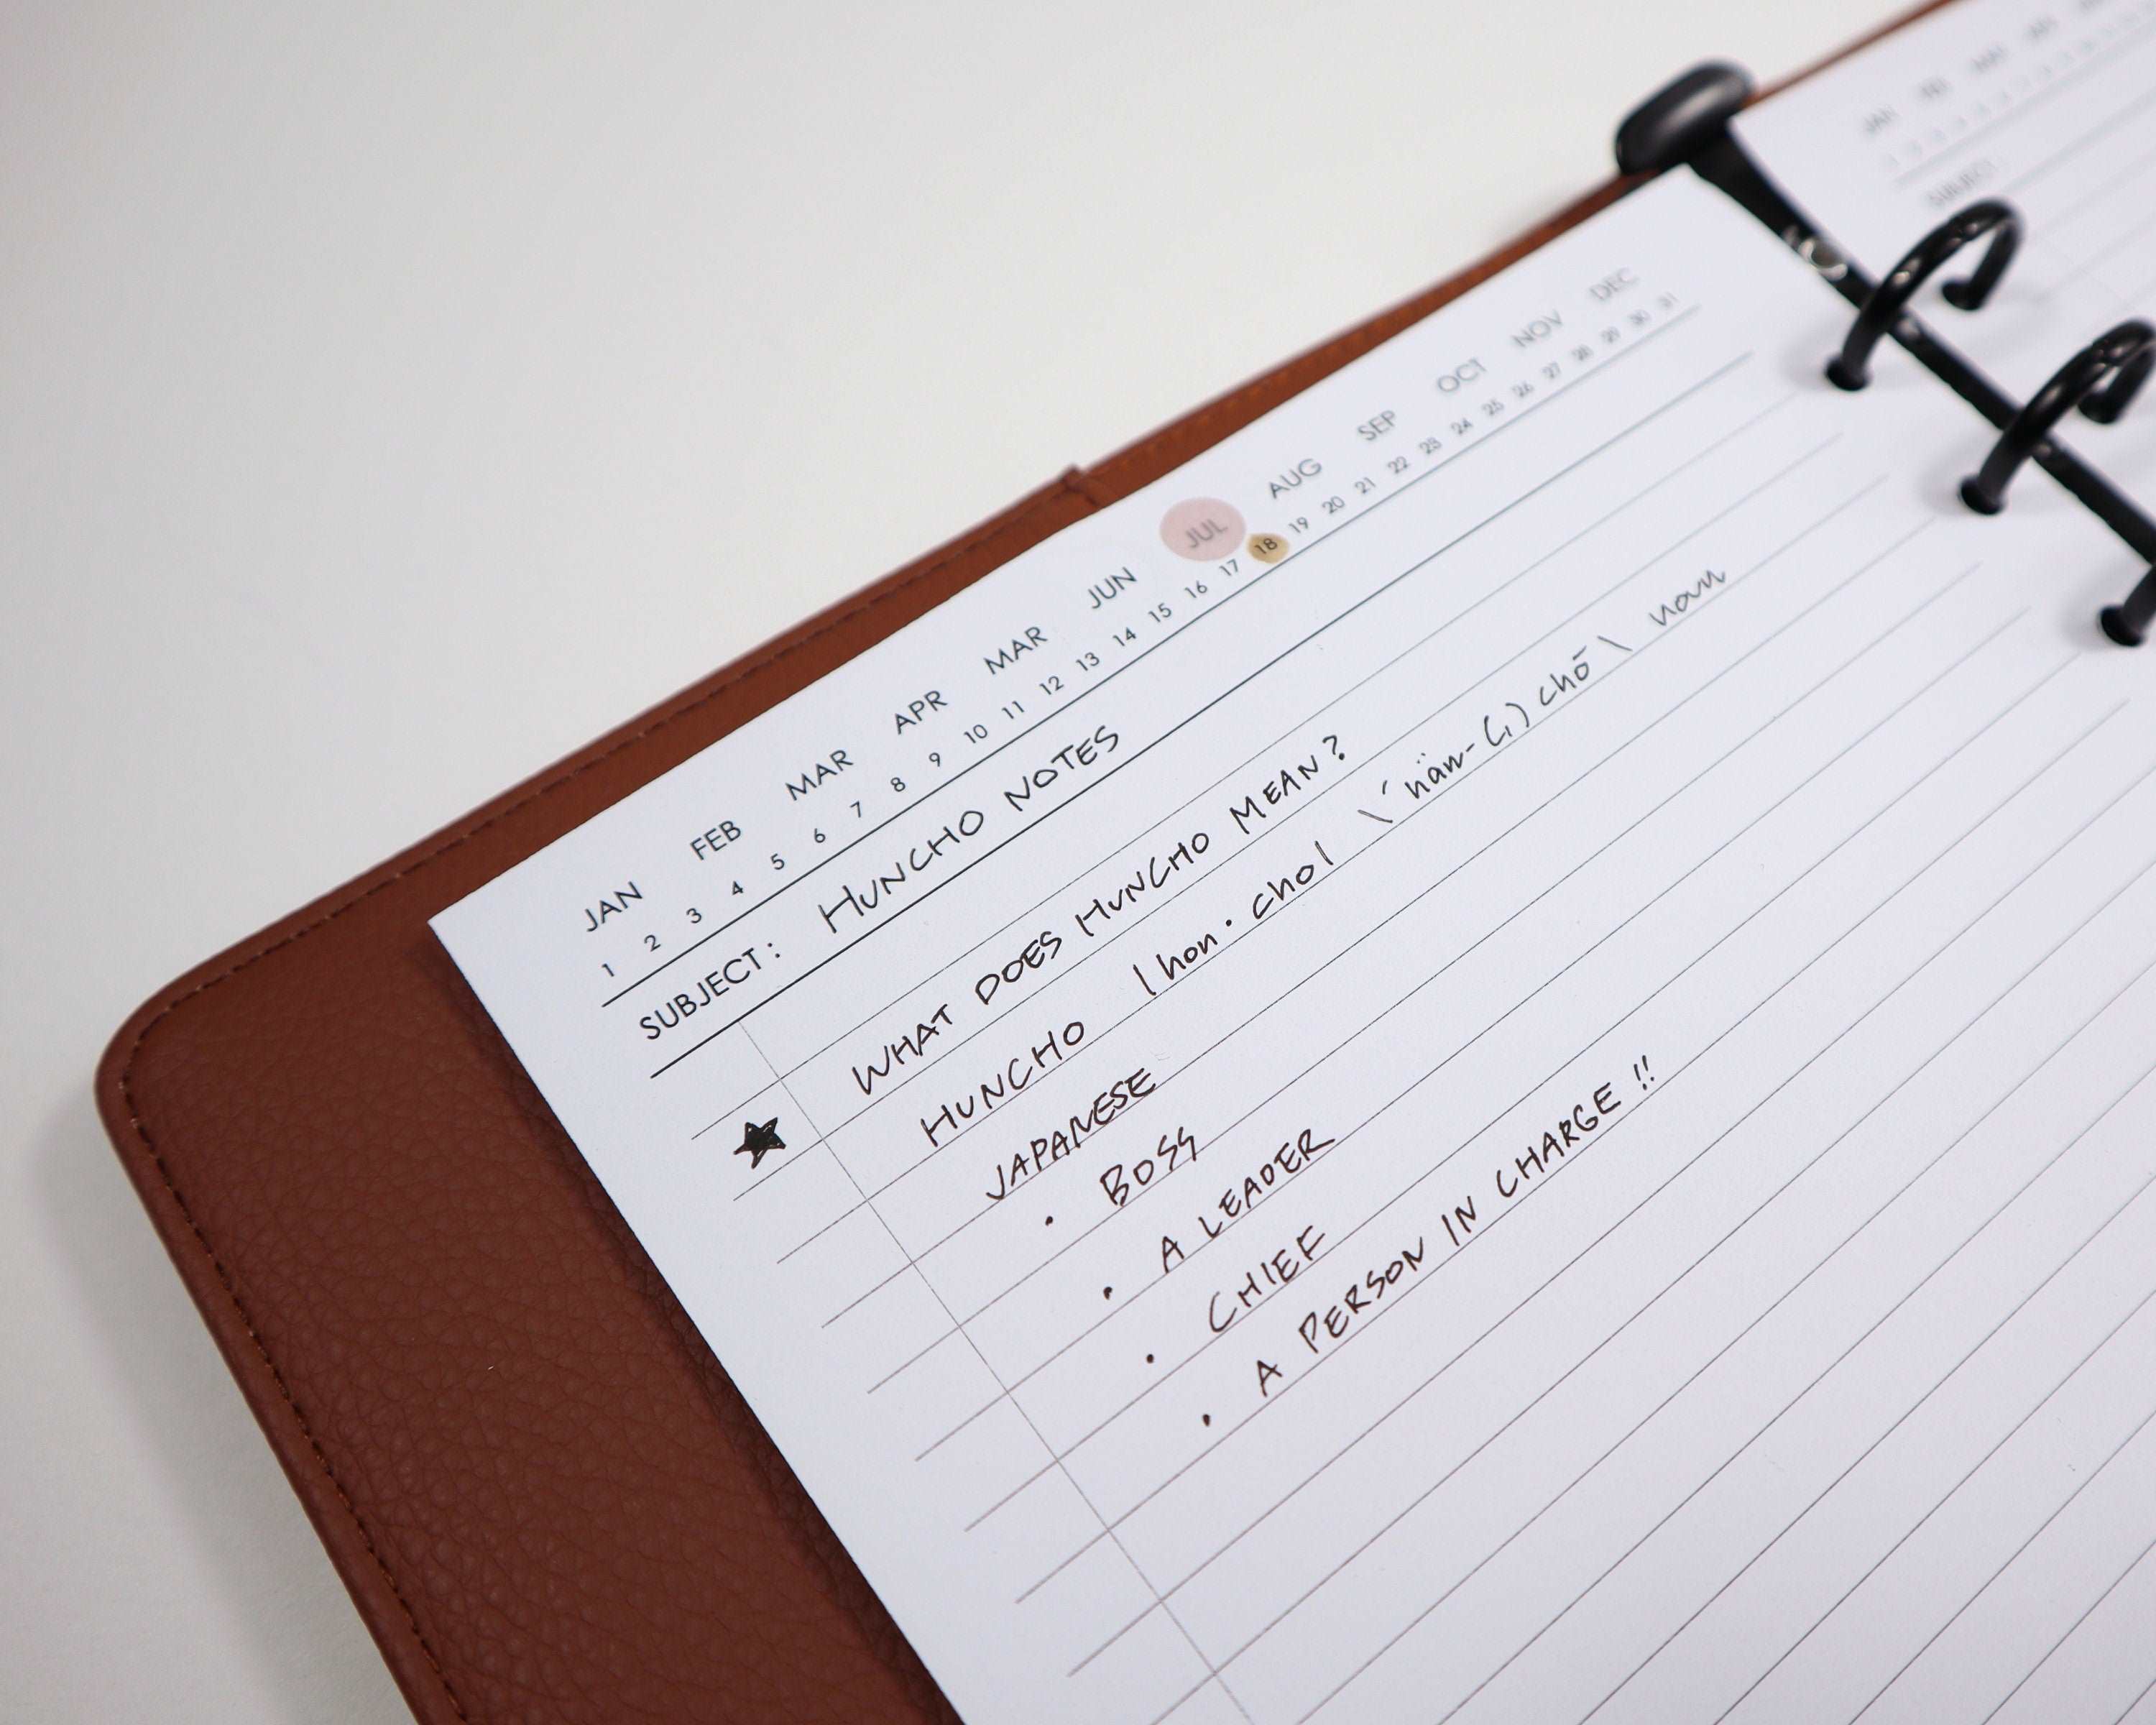 JAN FEB MAR APR MAR JUN JUL AUG SEP OCT NOV DEC
1 2 3 4 5 6 7 8 9 10 11 12 13 14 15 16 17 18 19 20 21 22 23 24 25 26 27 28 29 30 31
SUBJECT: HUNCHO NOTES
WHAT DOES HUNCHO MEAN?
HUNCHO |hon·cho| \ˈhän-(ˌ)chō\ noun
JAPANESE
• BOSS
• A LEADER
• CHIEF
• A PERSON IN CHARGE !!
JAN FEB MAR
SUBJECT: